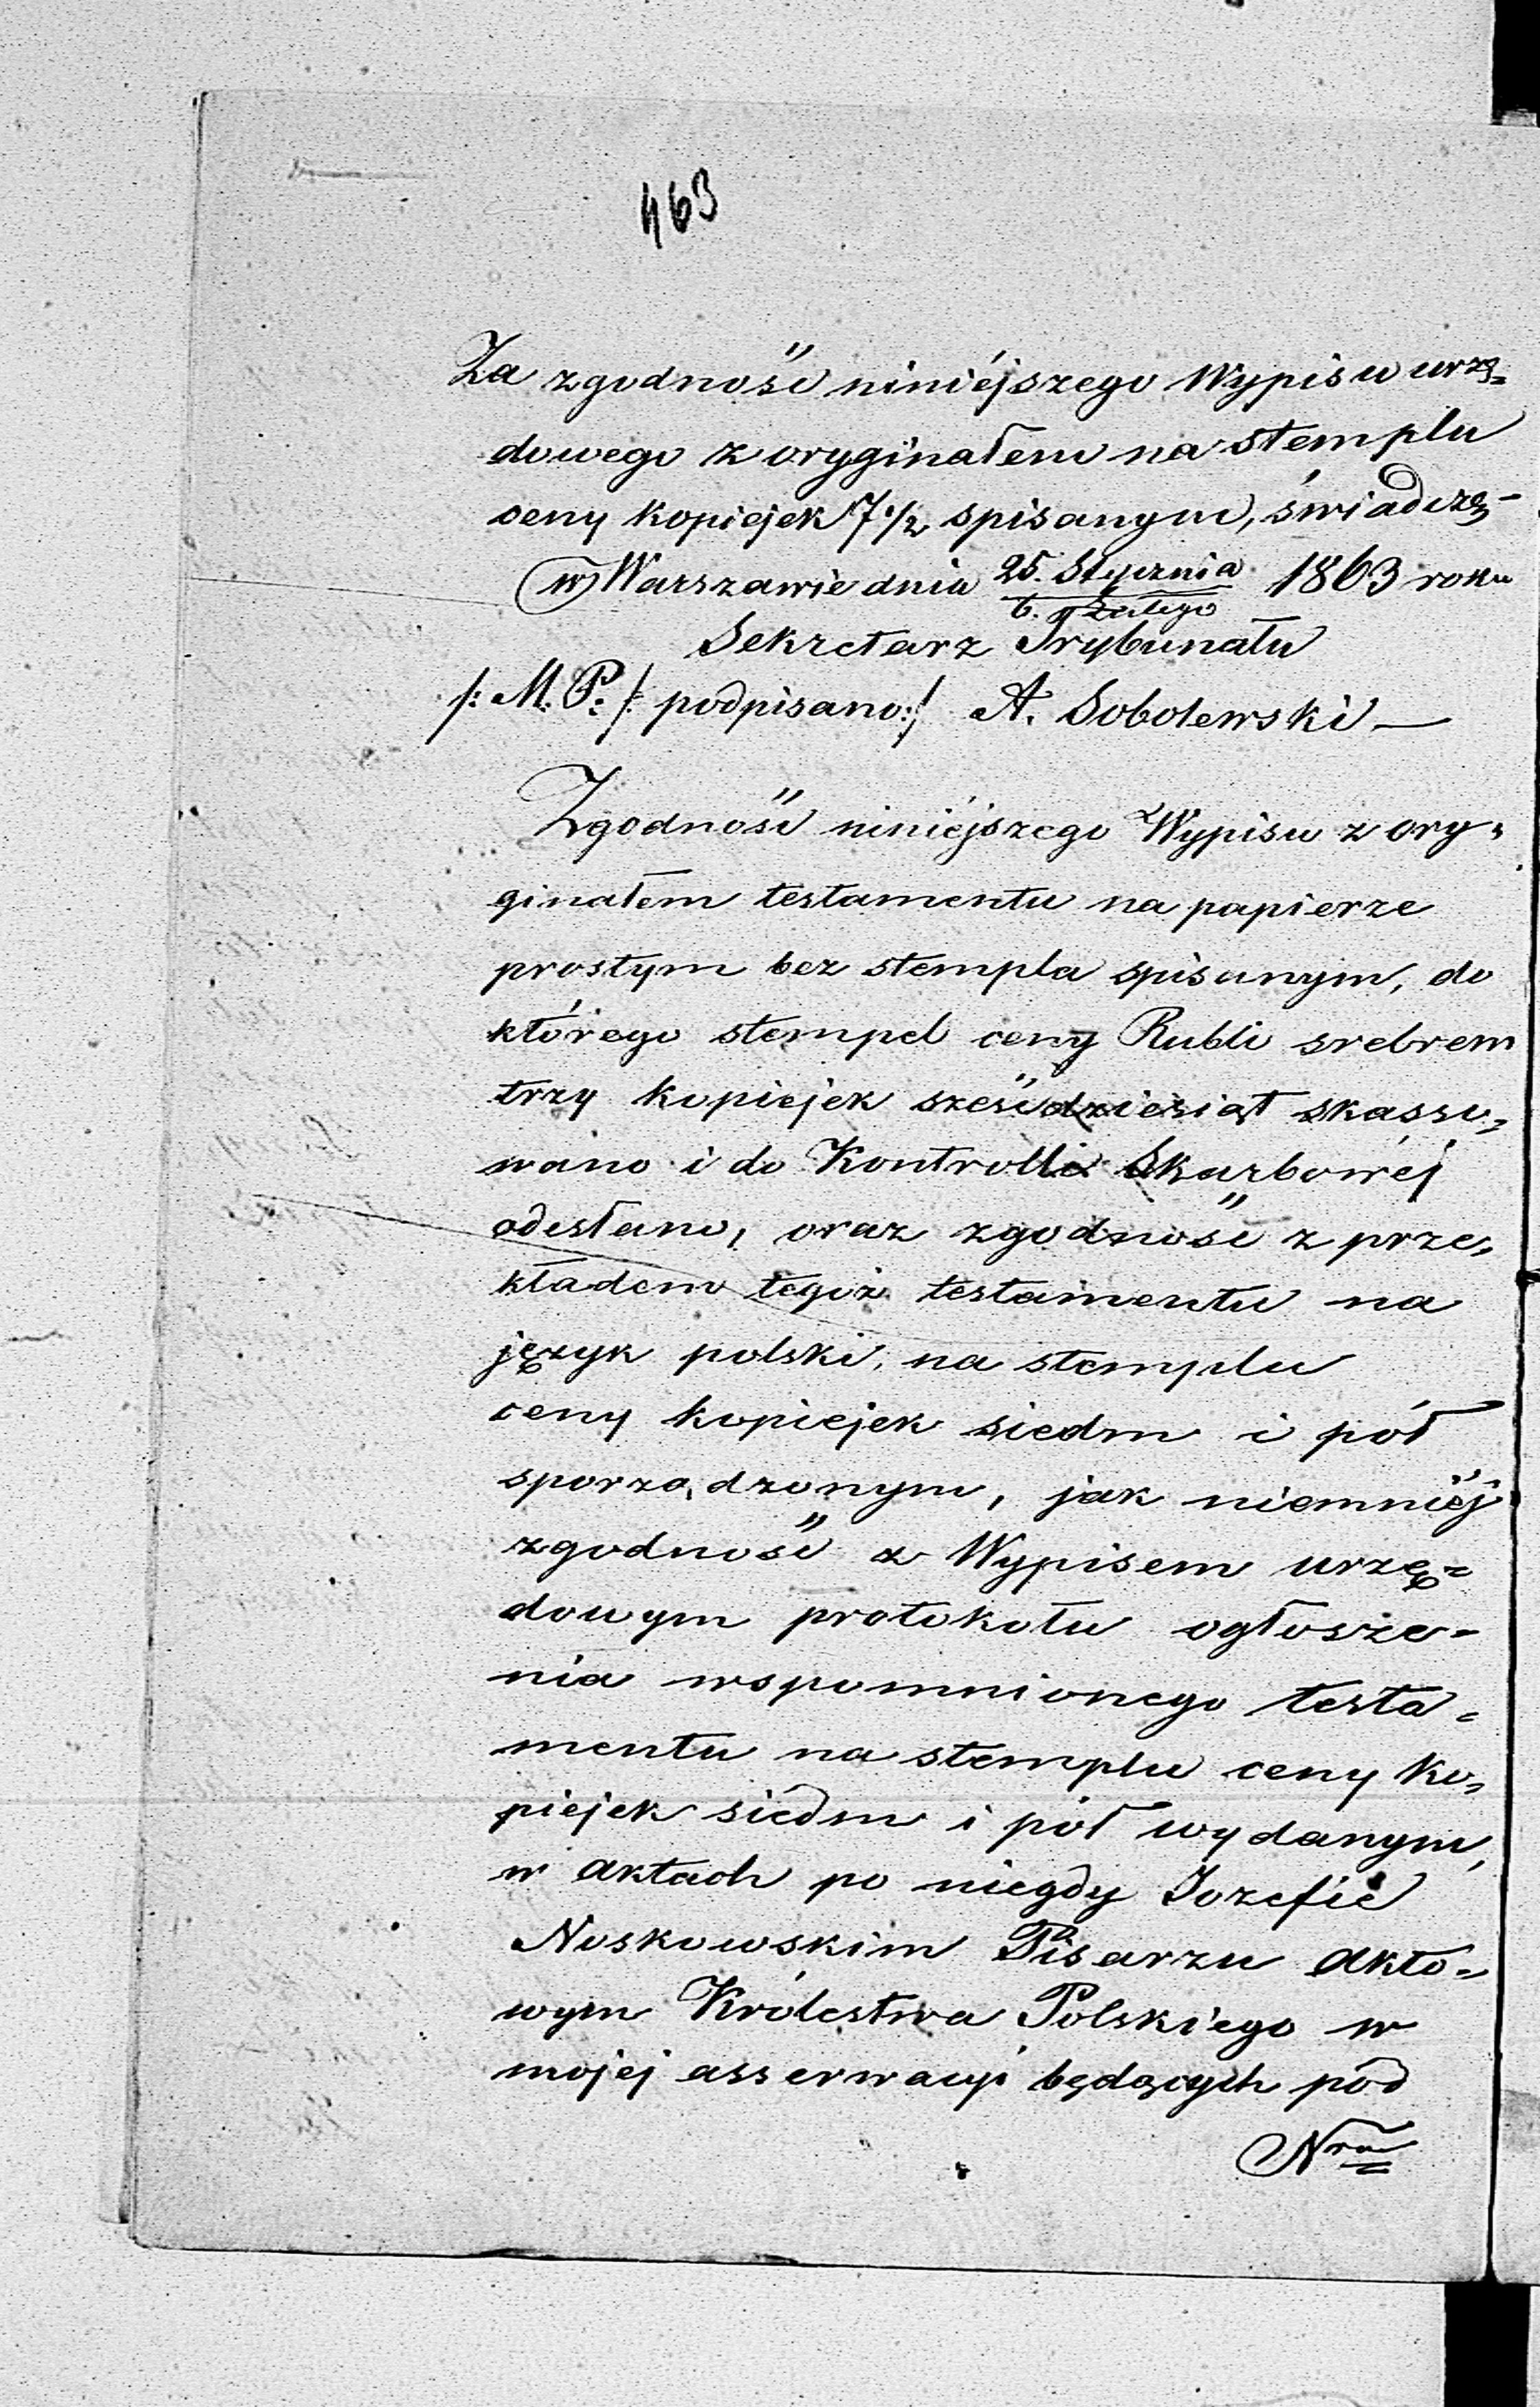 463
Za zgodność niniéjszego Wypisu urzę=
dowego z oryginałem na stemplu
ceny kopiejek 7 1/2 spisanym, świadczę –
w Warszawie dnia 25. Stycznia 1863 roku
6. Lutego
Sekretarz Trybunału
/: M. P: /: podpisano :/ A. Sobolewski —
Zgodność niniéjszego Wypisu z ory=
ginałem testamentu na papierze
prostym bez stempla spisanym, do
którego stempel ceny Rubli srebrem
trzy kopiejek sześćdziesiąt skasso=
wano i do Kontrolli Skarbowéj
odesłano, oraz zgodność z prze=
kładem tegoż testamentu na
język polski, na stemplu
ceny kopiejek siedm i pół
sporządzonym, jak niemniéj
zgodność z Wypisem urzę=
dowym protokołu ogłosze=
nia wspomnionego testa=
mentu na stemplu ceny ko=
piejek siedm i pół wydanym,
w aktach po niegdy Jozefie
Noskowskim Pisarzu Akto=
wym Królestwa Polskiego w
mojej asserwacyi będących pod
Nrm